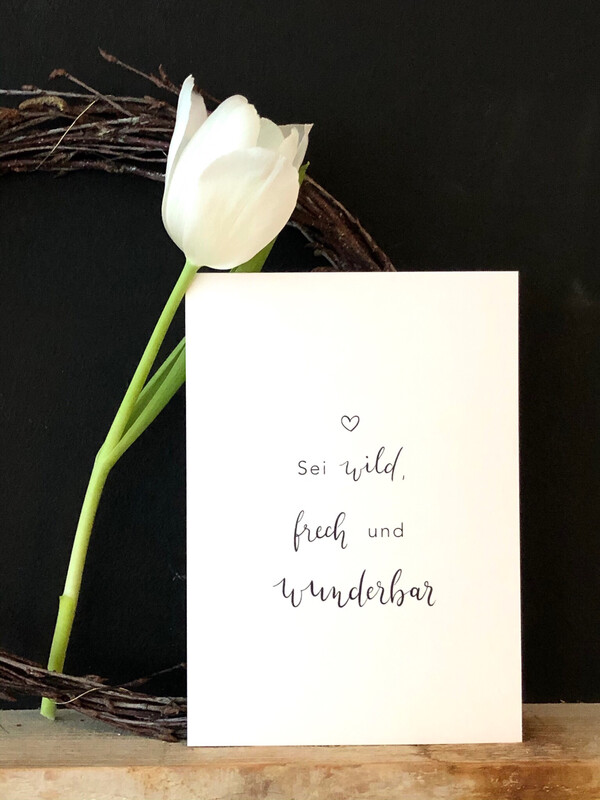 Sei wild,
frech und
wunderbar